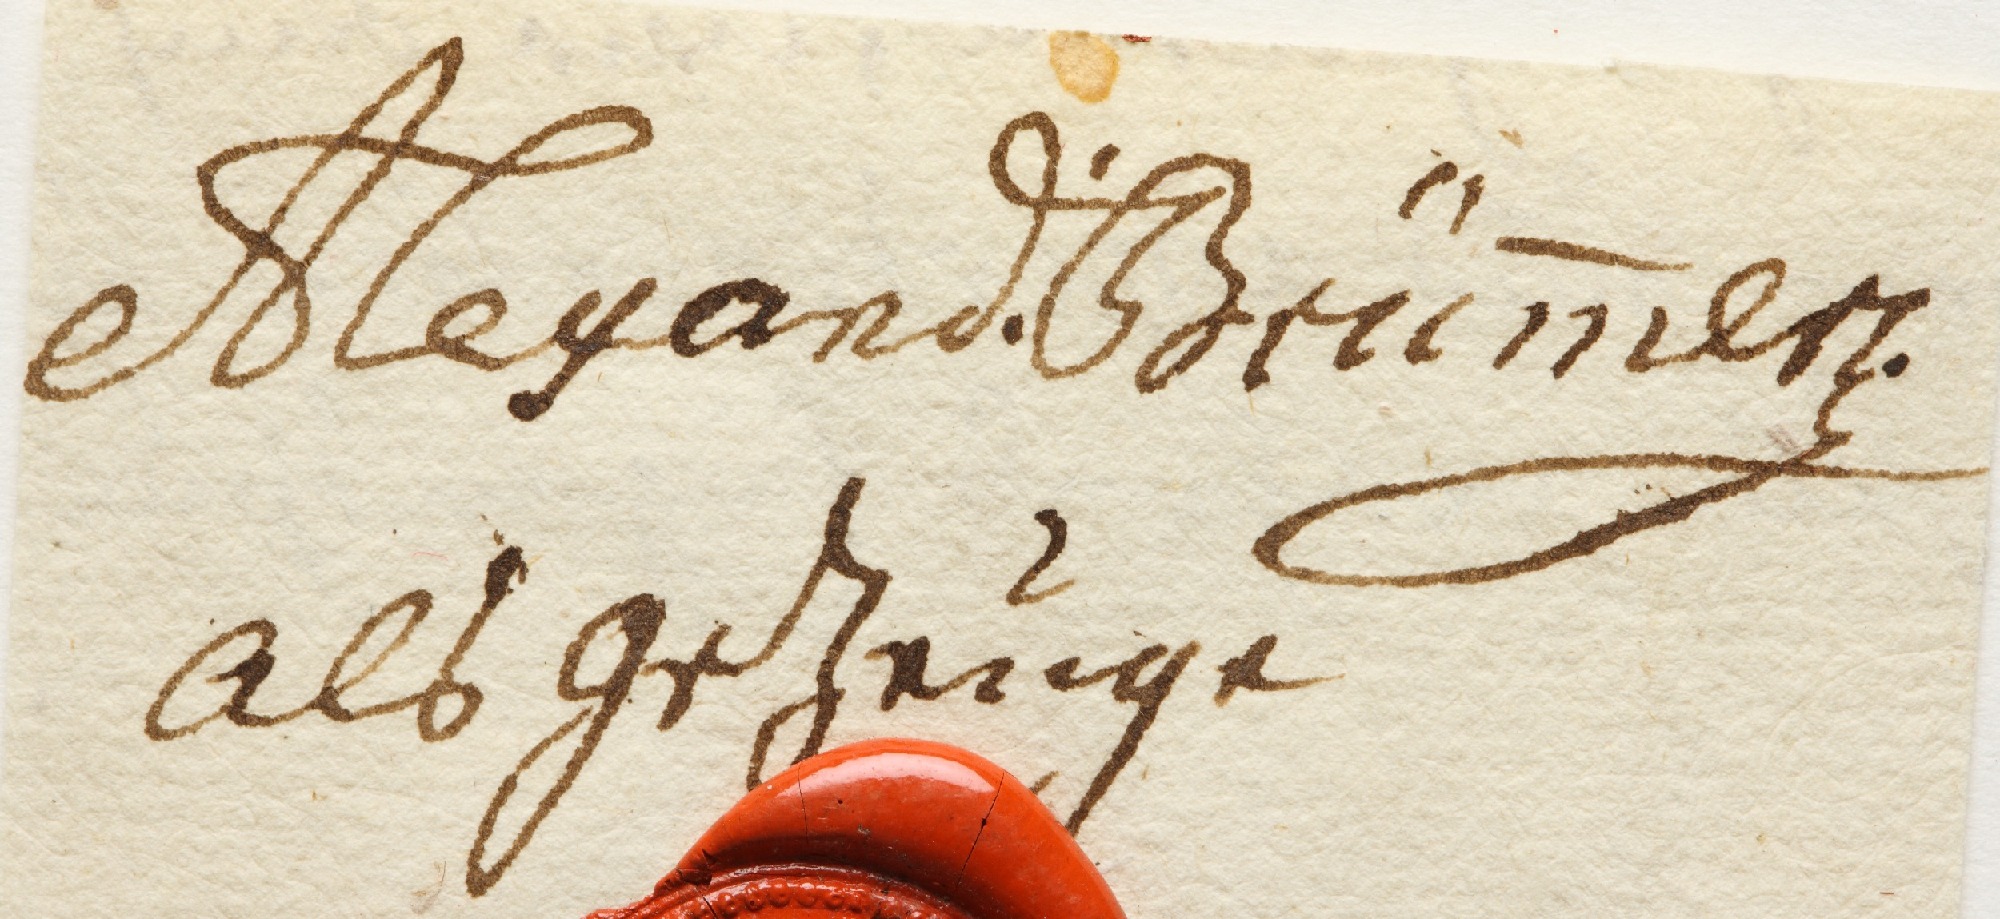 Alexand: Brüm̅er.
als geZeuge